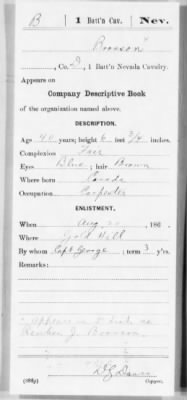 B | 1 Batt'n Cav. | Nev.
Boosson
, Co. D, 1 Batt'n Nevada Cavalry.
Appears on
Company Descriptive Book
of the organization named above.
DESCRIPTION.
Age 40 years; height 6 feet 3/4 inches.
Complexion Fair
Eyes Blue; hair Brown
Where born Canada
Occupation Carpenter
ENLISTMENT.
When Aug 186 .
Where Gold Hill
By whom Capt George; term 3 y'rs.
Remarks:
Appears in as
J. Boosson
Copyist.